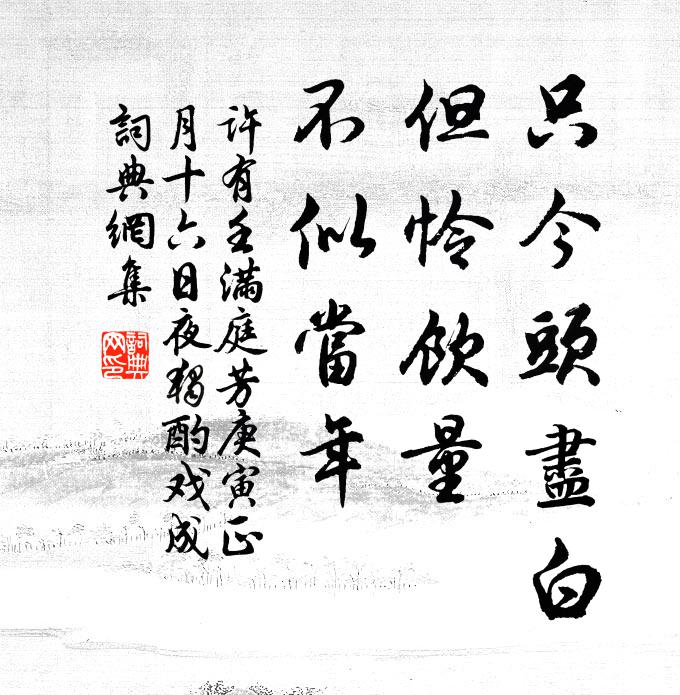 只今頭盡白
但怜飲量
不似當年
許有壬滿庭芳庚寅正
月十六日夜獨酌戏成
詞典網集
詞典
网印